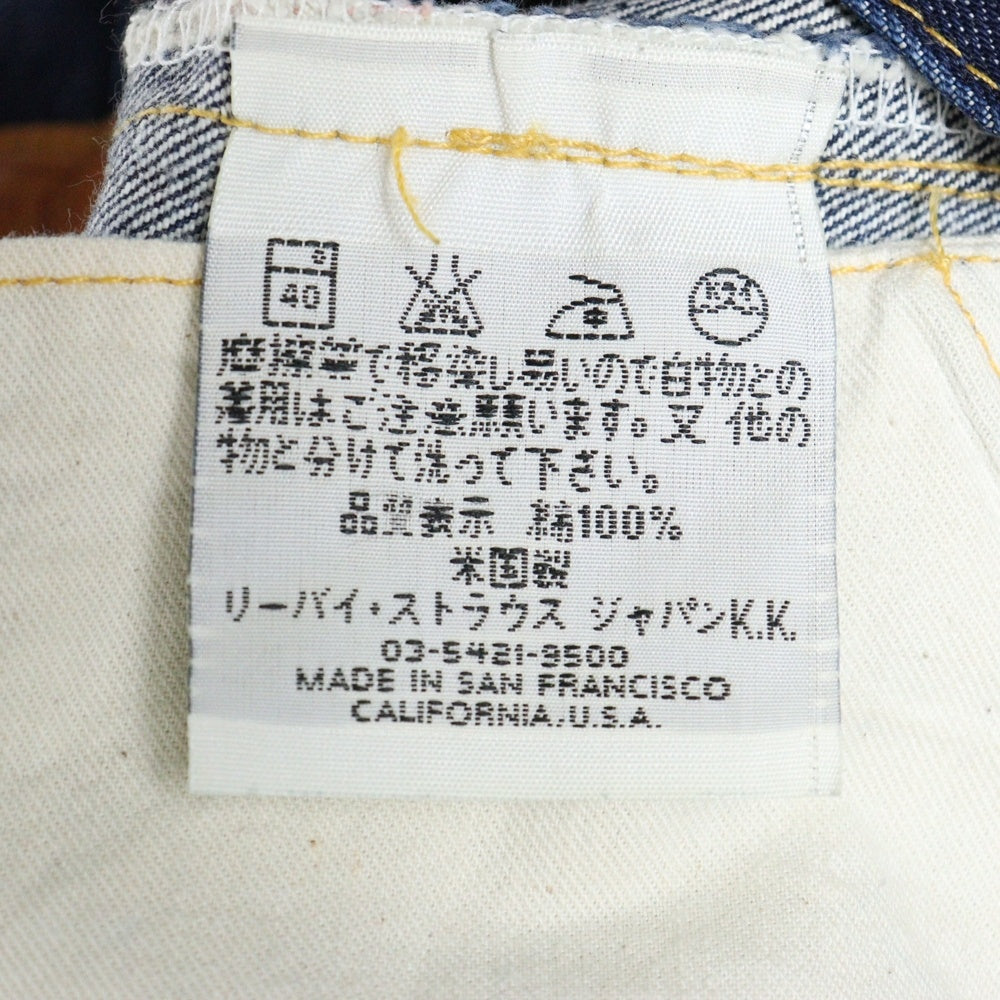 40
摩擦等で移染し易いので白物との
着用はご注意願います。又 他の
物と分けて洗って下さい。
品質表示 綿100%
米国製
リーバイ・ストラウス ジャパンK.K.
03-5421-9500
MADE IN SAN FRANCISCO
CALIFORNIA,U.S.A.